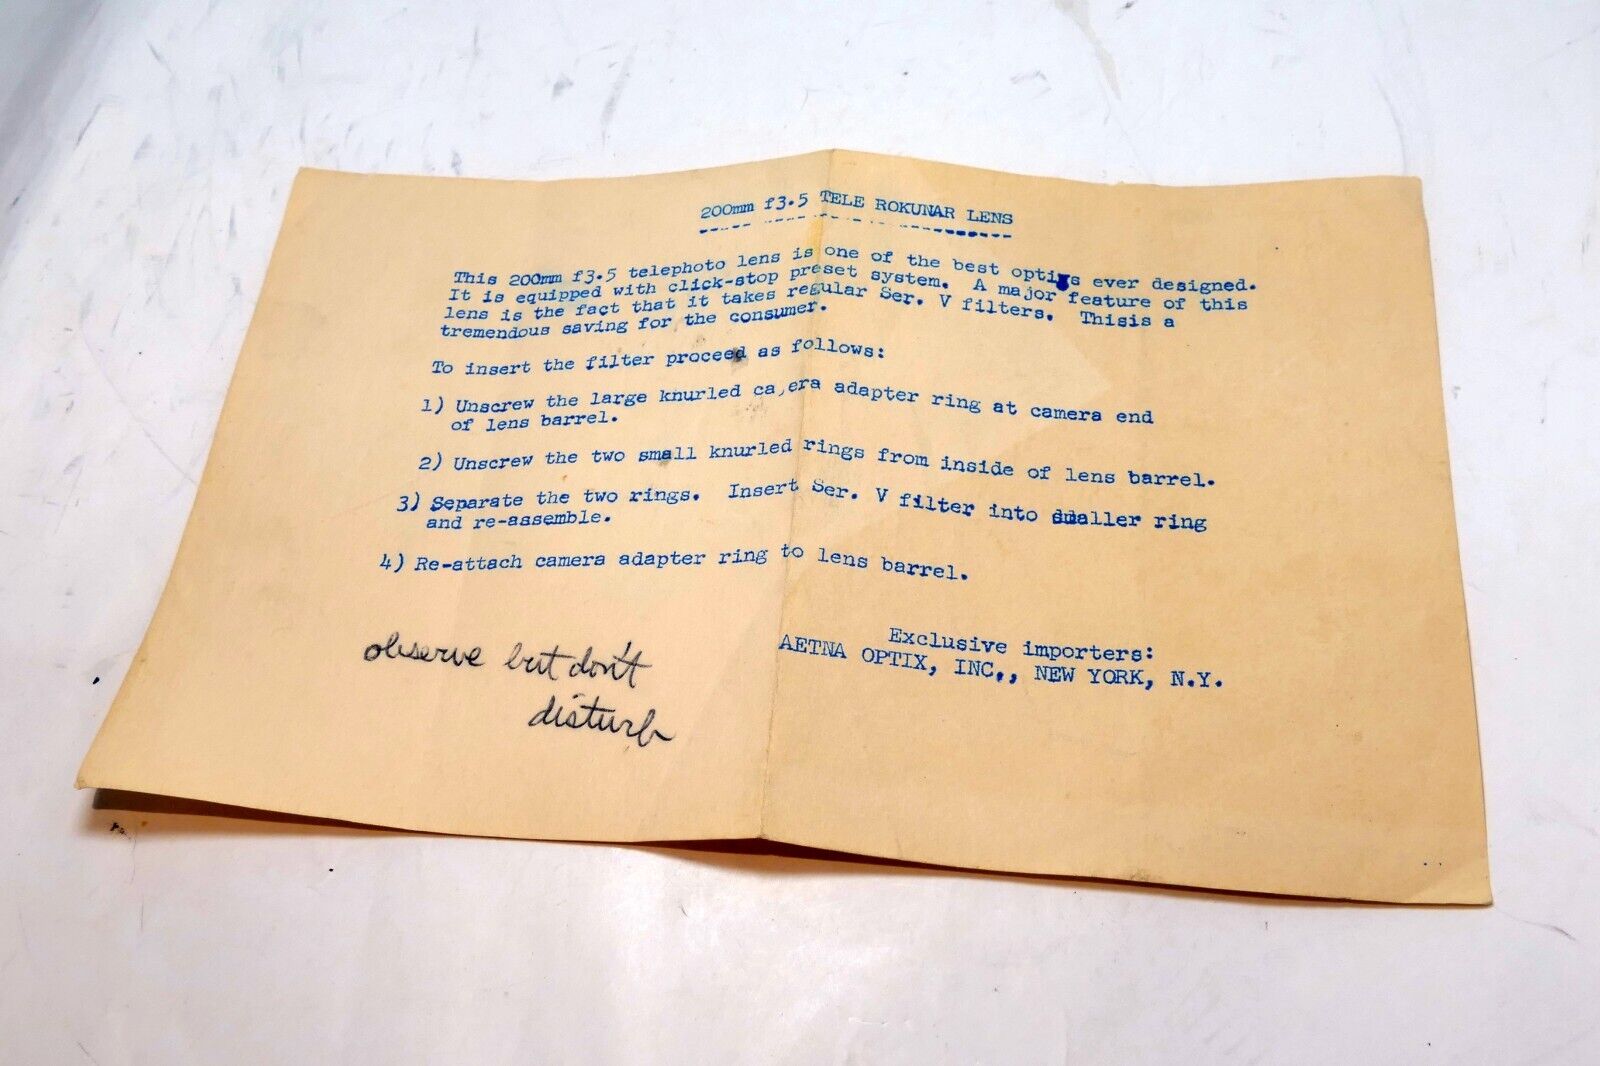 200mm f3.5 TELE ROKUNAR LENS
This 200mm f3.5 telephoto lens is one of the best optigs ever designed.
It is equipped with click-stop preset system. A major feature of this
lens is the fact that it takes regular Ser. V filters. Thisis a
tremendous saving for the consumer.
To insert the filter proceed as follows:
1) Unscrew the large knurled ca,era adapter ring at camera end
of lens barrel.
2) Unscrew the two small knurled rings from inside of lens barrel.
3) Separate the two rings. Insert Ser. V filter into smaller ring
and re-assemble.
4) Re-attach camera adapter ring to lens barrel.
Exclusive importers:
AETNA OPTIX, INC., NEW YORK, N.Y.
observe but don't
disturb